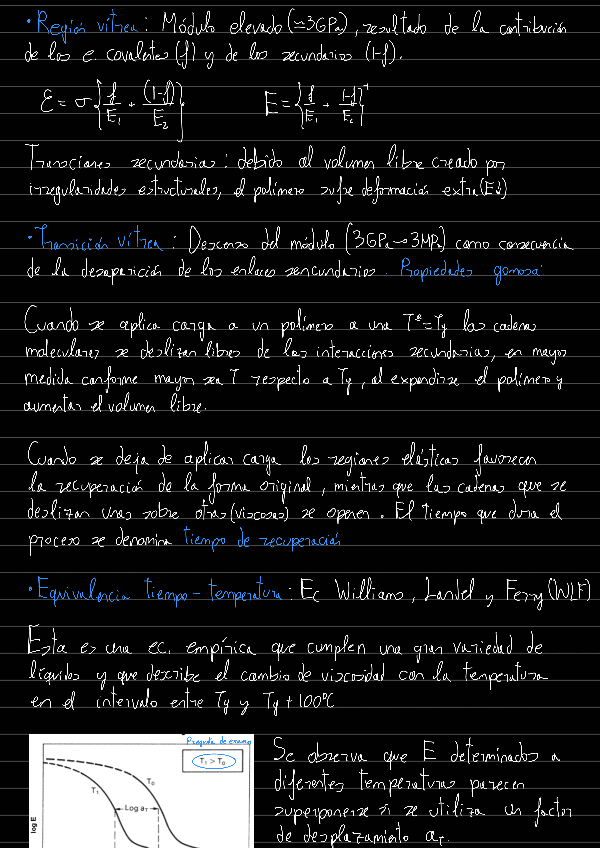 · Región vítrea: Módulo elevado (≃3GPa), resultado de la contribución
de los e. covalentes (f) y de los secundarios (1-f).
ε = σ{f/E₁ + (1-f)/E₂}   E = {f/E₁ + 1-f/E₂}⁻¹
Transiciones secundarias: debido al volumen libre creado por
irregularidades estructurales, el polímero sufre deformación extra (E↓)
· Transición vítrea: Descenso del módulo (3GPa → 3MPa) como consecuencia
de la desaparición de los enlaces sencundarios. Propiedades gomosa
Cuando se aplica carga a un polímero a una Tª=Tg las cadenas
moleculares se deslizan libres de las interacciones secundarias, en mayor
medida conforme mayor sea T respecto a Tg, al expandirse el polímero y
aumentar el volumen libre.
Cuando se deja de aplicar carga las regiones elásticas favorecen
la recuperación de la forma original, mientras que las cadenas que se
deslizan unas sobre otras (viscosas) se oponen. El tiempo que dura el
proceso se denomina tiempo de recuperación
· Equivalencia tiempo-temperatura: Ec Williams, Landel y Ferry (WLF)
Esta es una ec. empírica que cumplen una gran variedad de
líquidos y que describe el cambio de viscosidad con la temperatura
en el intervalo entre Tg y Tg + 100ºC
Pregunta de examen
T₁ > T₀
T₀
T₁
Log a_T
log E
Se observa que E determinados a
diferentes temperaturas parecen
superponerse si se utiliza un factor
de desplazamiento a_T.